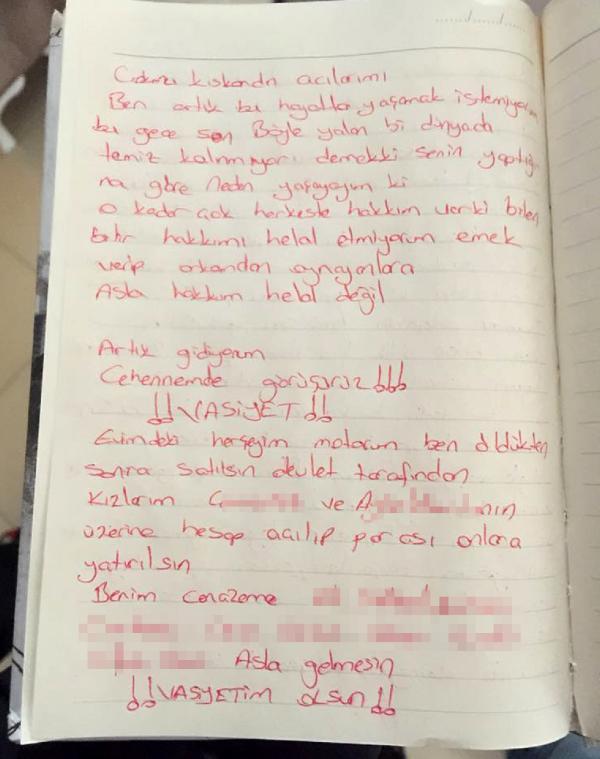 kıskandı acılarımı
Ben artık bu hayatta yaşamak istemiyorum
bu gece son Böyle yalan bi dünyada
temiz kalınmıyor demekki senin yaptığı
na göre Neden yaşayayım ki
o kadar çok herkeste hakkım var ki bilen
bilir hakkımı helal etmiyorum emek
verip arkandan oynayanlara
Asla hakkım helal değil
Artık gidiyorum
Cehennemde görüşürüz !!!
!! VASİYET !!
Evimdeki herşeyim motorum ben öldükten
sonra satılsın devlet tarafından
Kızlarım ve nın
üzerine hesap açılıp parası onlara
yatırılsın
Benim cenazeme
Asla gelmesin
!! VASYETİM OLSUN !!